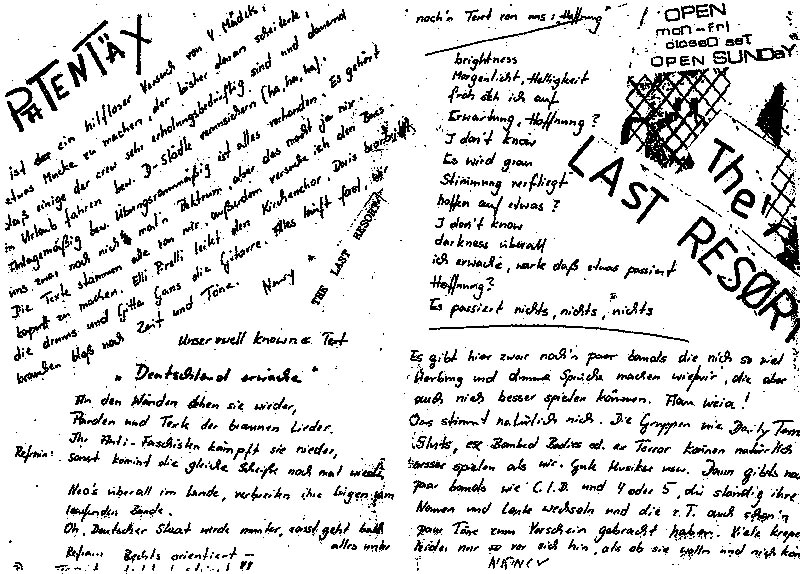 PÄTENTÄX
ist der ein hilfloser Versuch von 4 Mädels,
etwas Mucke zu machen, der bisher daran scheiterte,
daß einige der crew sehr erholungsbedürftig sind und dauernd
in Urlaub fahren bzw. D-Städte verunsichern (ha, ha, ha).
Anlagemäßig bzw. Übungsraummäßig ist alles vorhanden. Es gehört
uns zwar noch nich mal'n Plektrum, aber das macht ja nix.
Die Texte stammen alle von mir, außerdem versuche ich den Bass
kaputt zu machen. Elli Pirelli leitet den Kirchenchor, Doris
die drums und Gitta Gans die Gitarre. Alles läuft
brauchen bloß noch Zeit und Töne.
THE LAST RESORT
Unser well known Text
„Deutschland erwache"
An den Wänden stehen sie wieder,
Parolen und Texte der braunen Lieder.
Ihr Anti-Faschisten kämpft sie nieder,
Refrain: sonst kommt die gleiche Scheiße noch mal wieder
Neo's überall im Lande, verbreiten ihre Lügen zum
laufenden Bande.
Oh, Deutscher Staat werde munter, sonst geht bald
alles unter
Refrain Rechts orientiert –
noch'n Text von uns: Hoffnung"
brightness
Morgenlicht, Helligkeit
froh steh ich auf
Erwartung, Hoffnung?
I don't know
Es wird grau
Stimmung verfliegt
hoffen auf etwas?
I don't know
darkness überall
ich erwache, warte daß etwas passiert
Hoffnung?
Es passiert nichts, nichts, nichts
OPEN
mon-fri
closed sat
OPEN SUNDAY
The
LAST RESØRT
Es gibt hier zwar noch'n paar bands die nich so viel
Werbung und dumme Sprüche machen wie wir, die aber
auch nich besser spielen können. Auu weia!
Das stimmt natürlich nich. Die Gruppen wie Daily Terror
Sluts, ex Banned Bodies od. ex Terror können natürlich
besser spielen als wir. Gute Musiker usw. Dann gibts noch
paar bands wie C.I.D. und 4 oder 5, die ständig ihre
Namen und Leute wechseln und die z.T. auch schon'n
paar Töne zum Vorschein gebracht haben. Viele
leider nur so vor sich hin, als ob sie wolln und nich
NANCY